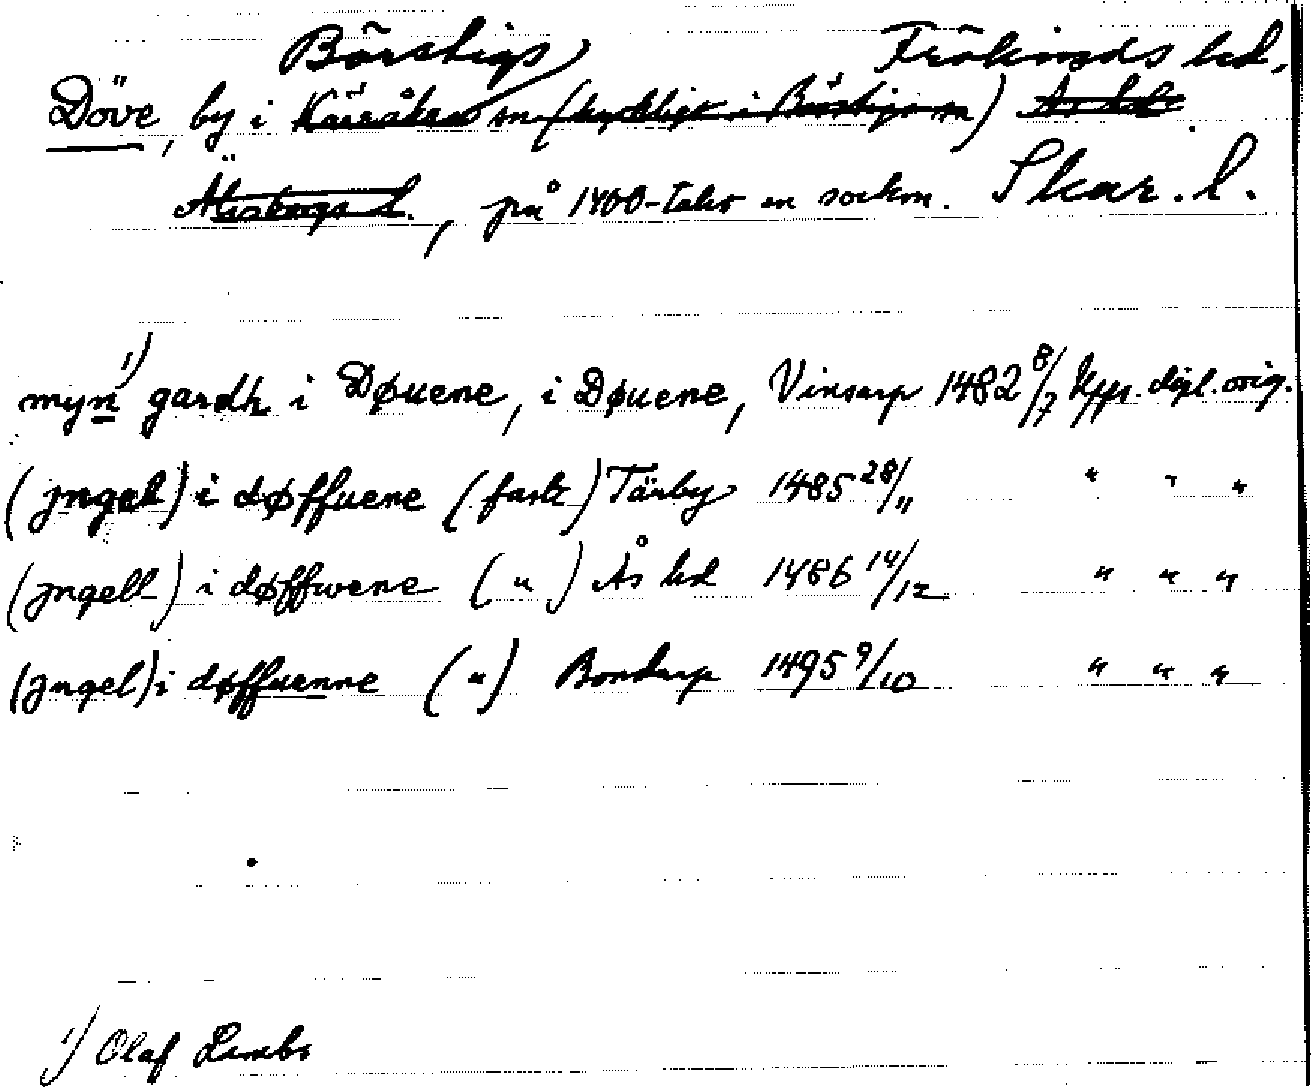 Börstigs Frökinds hd,
Döve, by i Kärråkra sn (kyrkligt i Börstigs sn) Ås hd.
Älvsborgs l., på 1400-talet en socken. Skar. l.
myn 1) gardh i Døuene, i Døuene, Vinsarp 1482 8/7 Uppr. dipl. orig.
(jngel) i døffuene (fast) Tärby 1485 28/11 " " "
(jngell) i døffwene ( " ) Ås hd 1486 14/12 " " "
(jngel) i døffuenne ( " ) Bondarp 1495 9/10 " " "
1) Olaf Lambe